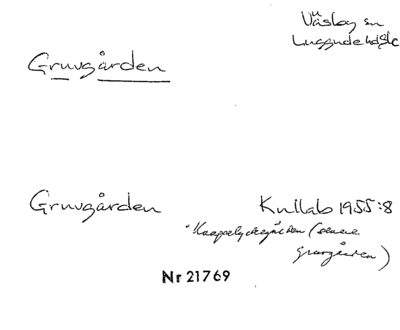 Väsby sn
Luggude hd Sk
Gruvgården
Gruvgården Kullab 1955:8
(senare
gruvgården)
Nr 21769